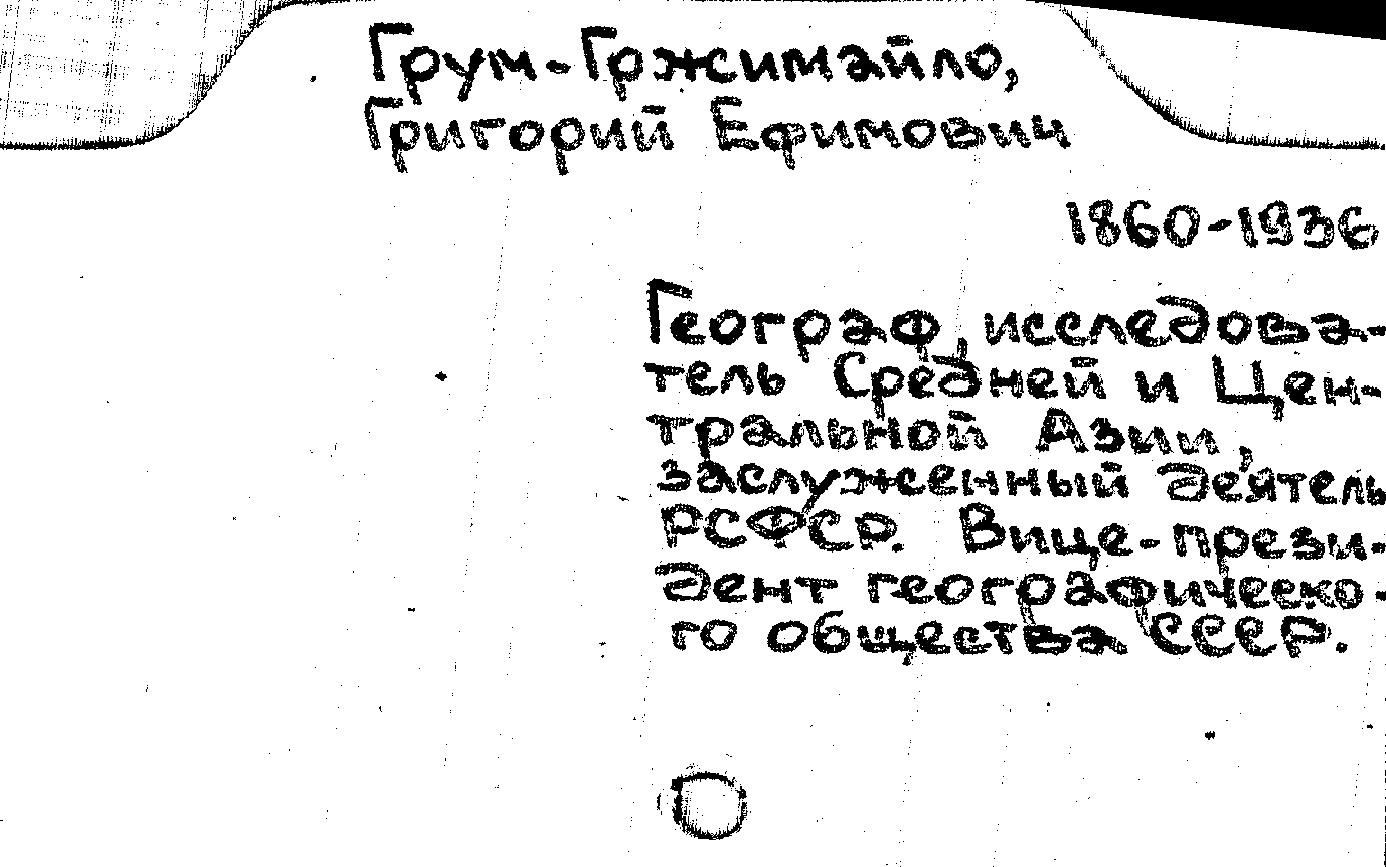 Грум-Гржимайло,
Григорий Ефимович
1860-1936
Географ, исследова-
тель Средней и Цен-
тральной Азии,
заслуженный деятель
РСФСР. Вице-прези-
дент географическо-
го общества СССР.